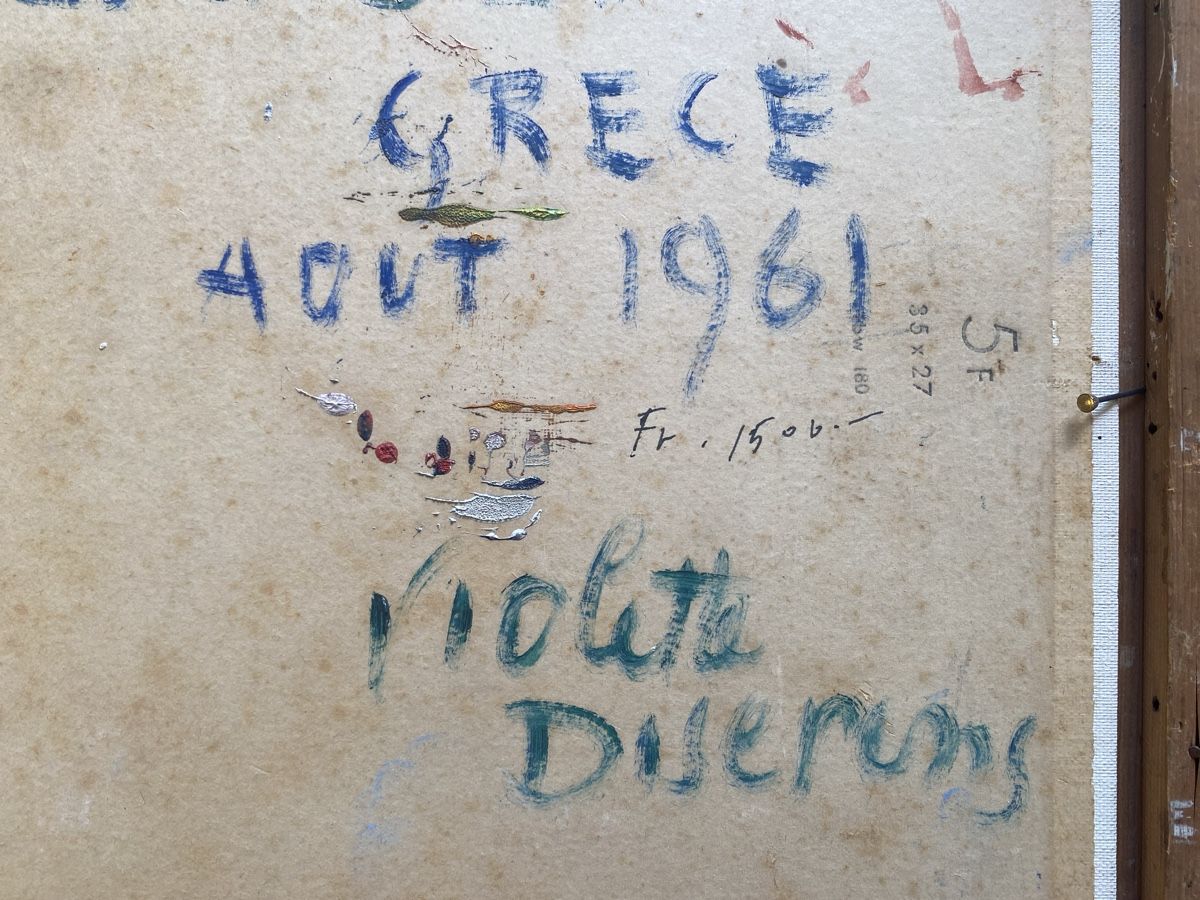 GRECE
AOUT 1961
35 x 27
5 F
Fr. 1500.-
Violette
Diserens